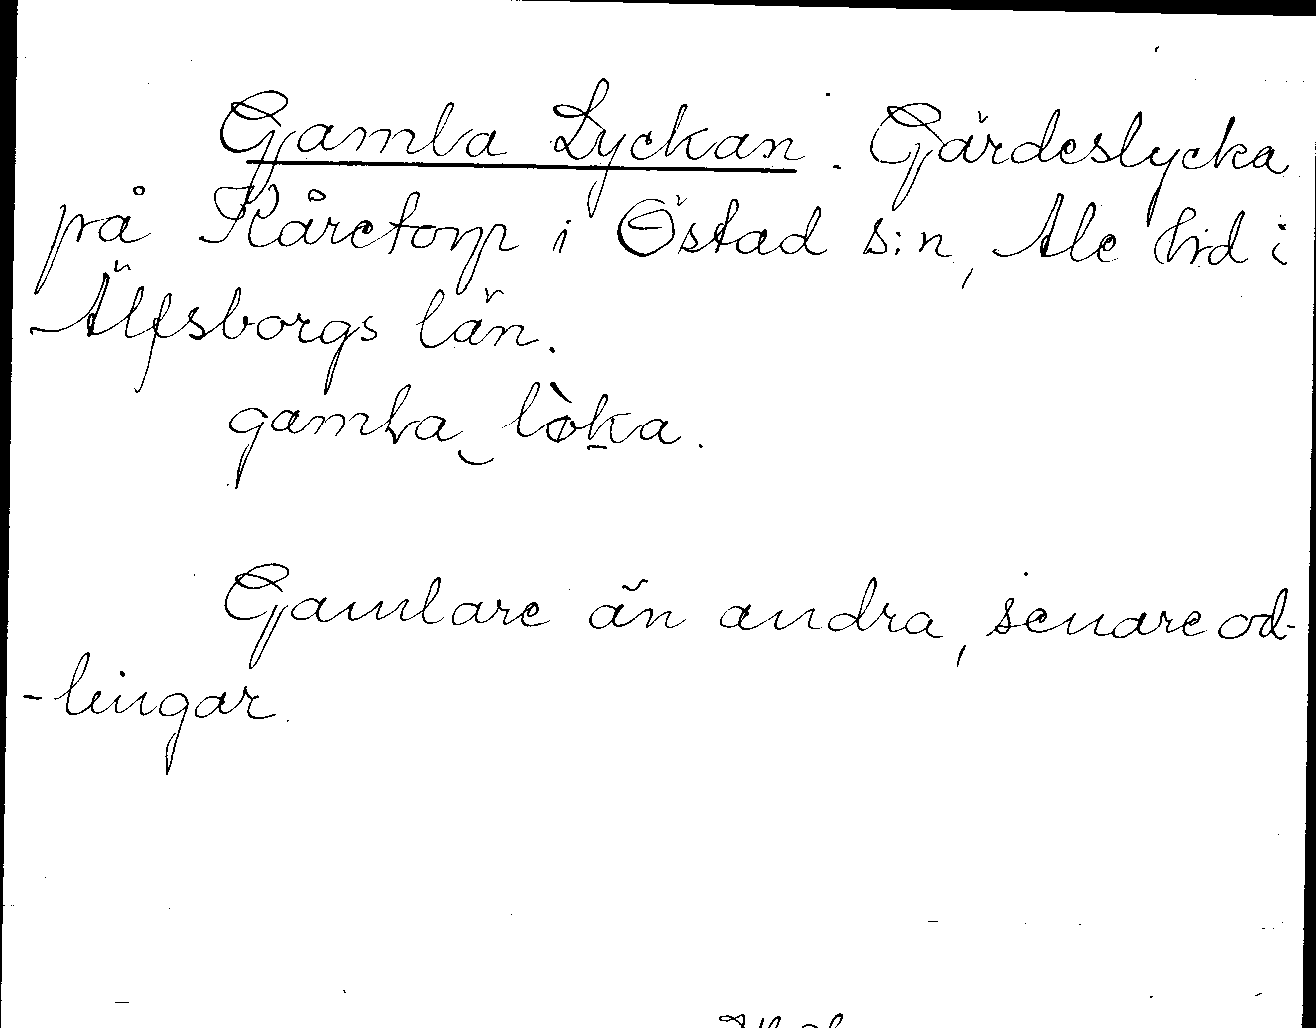 Gamla Lyckan. Gärdeslycka
på Kåretorp i Östad s:n, Ale hd i
Älfsborgs län.
gamla‿lòka.
Gamlare än andra, senare od-
-lingar.